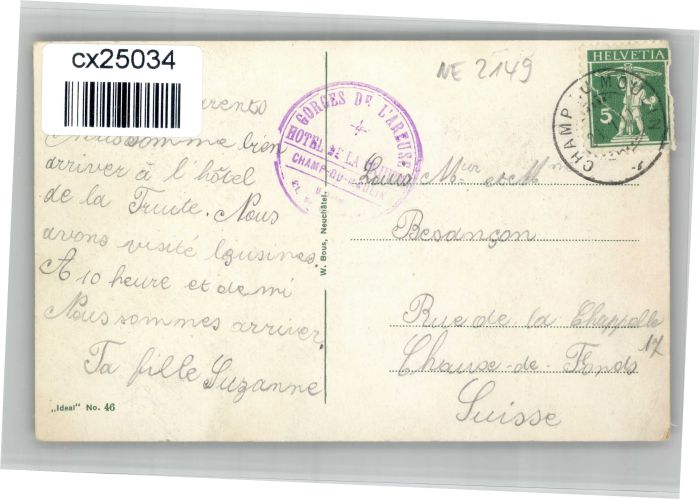 cx25034
NE 2149
HELVETIA
5
CHAMP-DU-MOULIN
GORGES DE L'AREUSE
HOTEL DE LA
CHAMP-DU-MOULIN
arents
Nous sommes bien
arriver à l'hôtel
de la Truite. Nous
avons visité lgusines.
A 10 heure et demi
Nous sommes arriver.
Ta fille Suzanne
„Ideal" No. 46
W. Bous, Neuchâtel.
Mur et Mme
Besançon
Rue de la Chappelle
17
Chaux-de-Fonds
Suisse